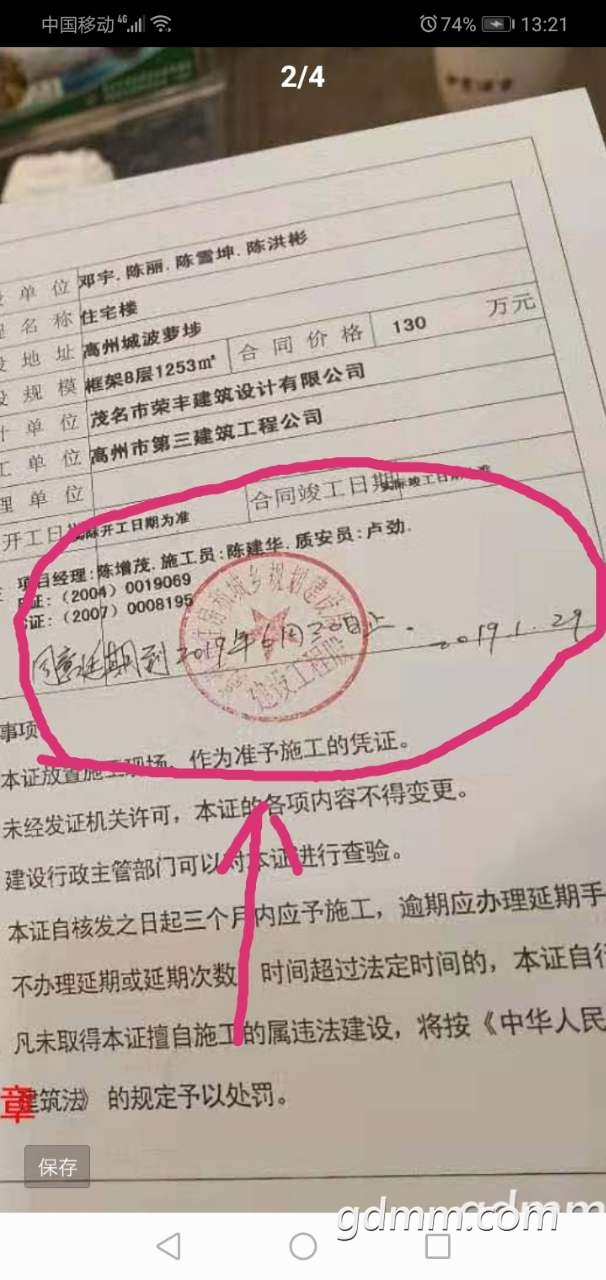 中国移动 4G 74% 13:21
2/4
单位 邓宇.陈丽.陈雪坤.陈洪彬
名称 住宅楼
地址 高州城波萝埗
规模 框架8层1253㎡ 合同价格 130 万元
单位 茂名市荣丰建筑设计有限公司
单位 高州市第三建筑工程公司
理单位
开工日 实际开工日期为准 合同竣工日期
项目经理:陈增茂.施工员:陈建华.质安员:卢劲.
证:（2004）0019069
证:（2007）0008195
城乡规划建设
建设工程
同意延期到2019年 月30日止. 2019.1.29
事项
本证放置施工现场，作为准予施工的凭证。
未经发证机关许可，本证的各项内容不得变更。
建设行政主管部门可以对本证进行查验。
本证自核发之日起三个月内应予施工，逾期应办理延期手
不办理延期或延期次数、时间超过法定时间的，本证自行
凡未取得本证擅自施工的属违法建设，将按《中华人民
章
建筑法》的规定予以处罚。
保存
gdmm.com